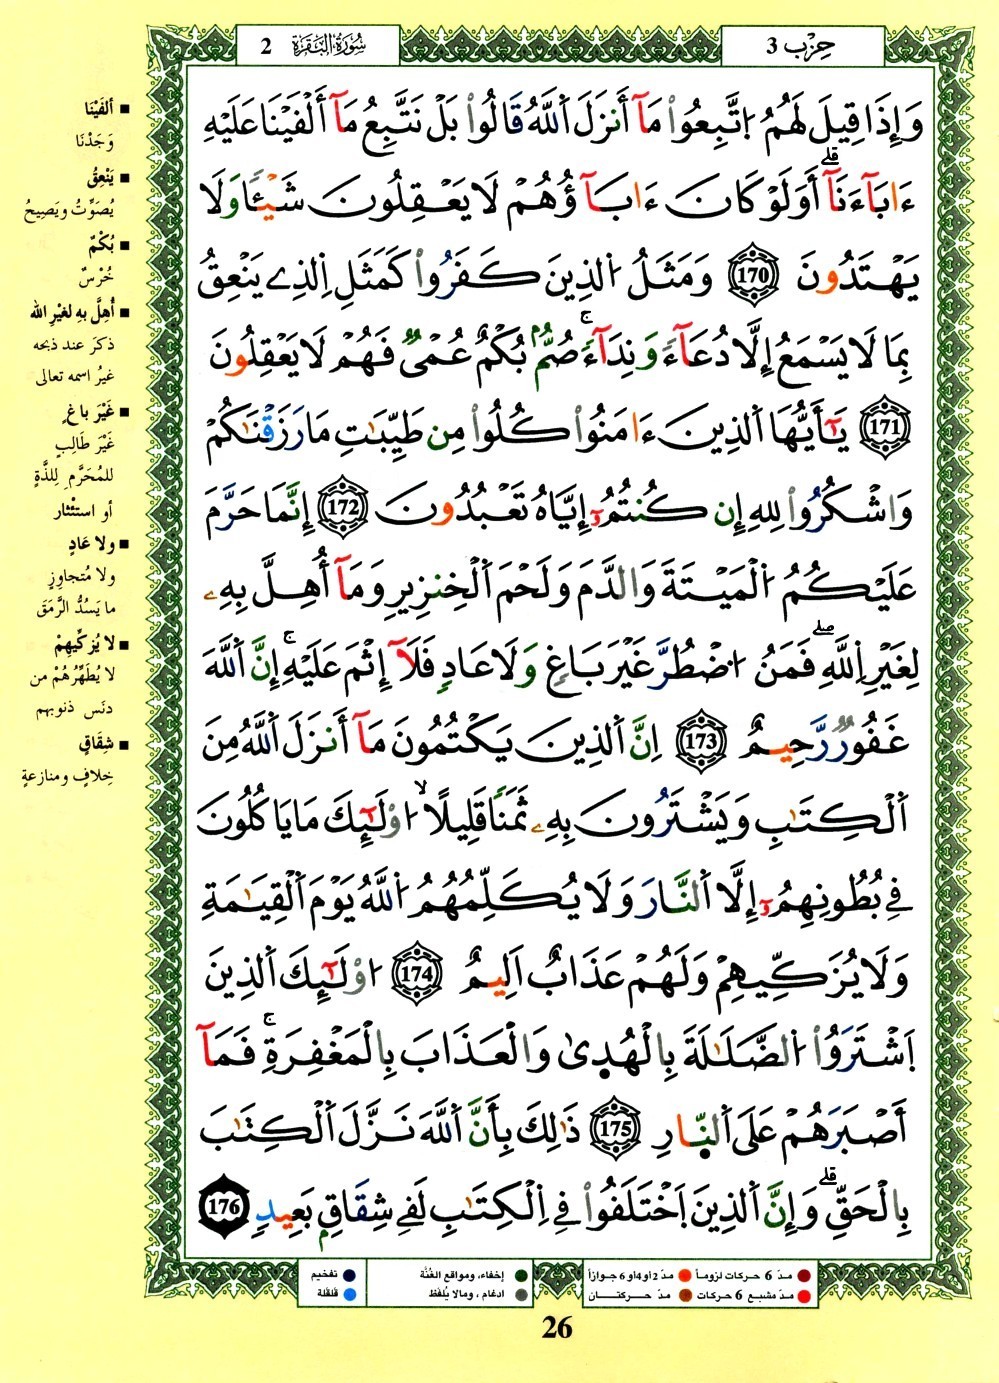 سُورَةُ البَقَرَة 2
حِزْب 3
وَإِذَا قِيلَ لَهُمُ اُ۪تَّبِعُوا۟ مَآ أَنزَلَ اَ۬للَّهُ قَالُوا۟ بَلْ نَتَّبِعُ مَآ أَلْفَيْنَا عَلَيْهِ
ءَابَآءَنَآ ۗ أَوَلَوْ كَانَ ءَابَآؤُهُمْ لَا يَعْقِلُونَ شَيْـًٔا وَلَا
يَهْتَدُونَ 170 وَمَثَلُ اُ۬لذِينَ كَفَرُوا۟ كَمَثَلِ اِ۬لذِے يَنْعِقُ
بِمَا لَا يَسْمَعُ إِلَّا دُعَآءً وَنِدَآءً ۚ صُمٌّۢ بُكْمٌ عُمْىٌ فَهُمْ لَا يَعْقِلُونَ
171 يَٰٓأَيُّهَا اَ۬لذِينَ ءَامَنُوا۟ كُلُوا۟ مِن طَيِّبَٰتِ مَا رَزَقْنَٰكُمْ
وَاشْكُرُوا۟ لِلهِ إِن كُنتُمُۥٓ إِيَّاهُ تَعْبُدُونَ 172 إِنَّمَا حَرَّمَ
عَلَيْكُمُ اُ۬لْمَيْتَةَ وَالدَّمَ وَلَحْمَ اَ۬لْخِنزِيرِ وَمَآ أُهِلَّ بِهِۦ
لِغَيْرِ اِ۬للَّهِ ۖ فَمَنُ اُ۟ضْطُرَّ غَيْرَ بَاغٍ وَلَا عَادٍ فَلَآ إِثْمَ عَلَيْهِ ۚ إِنَّ اَ۬للَّهَ
غَفُورٌ رَّحِيمٌ 173 اِنَّ اَ۬لذِينَ يَكْتُمُونَ مَآ أَنزَلَ اَ۬للَّهُ مِنَ
اَ۬لْكِتَٰبِ وَيَشْتَرُونَ بِهِۦ ثَمَنًا قَلِيلًا ۙ اُوْلَٰٓئِكَ مَا يَاكُلُونَ
فِے بُطُونِهِمُۥٓ إِلَّا اَ۬لنَّارَ وَلَا يُكَلِّمُهُمُ اُ۬للَّهُ يَوْمَ اَ۬لْقِيَٰمَةِ
وَلَا يُزَكِّيهِمْ وَلَهُمْ عَذَابٌ اَلِيمٌ 174 اُوْلَٰٓئِكَ اَ۬لذِينَ
اَ۪شْتَرَوُا۟ اُ۬لضَّلَٰلَةَ بِالْهُدَىٰ وَالْعَذَابَ بِالْمَغْفِرَةِ ۚ فَمَآ
أَصْبَرَهُمْ عَلَى اَ۬لنّ۪ارِ 175 ذَٰلِكَ بِأَنَّ اَ۬للَّهَ نَزَّلَ اَ۬لْكِتَٰبَ
بِالْحَقِّ ۗ وَإِنَّ اَ۬لذِينَ اَ۪خْتَلَفُوا۟ فِے اِ۬لْكِتَٰبِ لَفِے شِقَاقِۢ بَعِيدٍ 176
■ ألفَيْنَا
وَجَدْنَا
■ يَنْعِقُ
يُصَوِّتُ ويَصِيحُ
■ بُكْمٌ
خُرْسٌ
■ أُهِلَّ بِهِ لغَيْرِ الله
ذكرَ عند ذبحه
غيرُ اسمه تعالى
■ غَيْرَ باغٍ
غَيْرَ طَالِبٍ
للمُحَرَّمِ لِلذَّةٍ
أو استئثار
■ ولا عَادٍ
ولا مُتجاوِزٍ
ما يَسُدُّ الرَّمَقَ
■ لا يُزَكِّيهِمْ
لا يُطَهِّرُهُمْ من
دنَس ذنوبهم
■ شِقَاقٍ
خِلافٍ ومنازعةٍ
مدّ 6 حركات لزوماً ● مدّ 2 أو 4 أو 6 جوازاً
مدّ مشبع 6 حركات ● مدّ حركتان
إخفاء، ومواقع الغُنَّة
ادغام، ومالا يُلفَظ
تفخيم
قلقلة
26